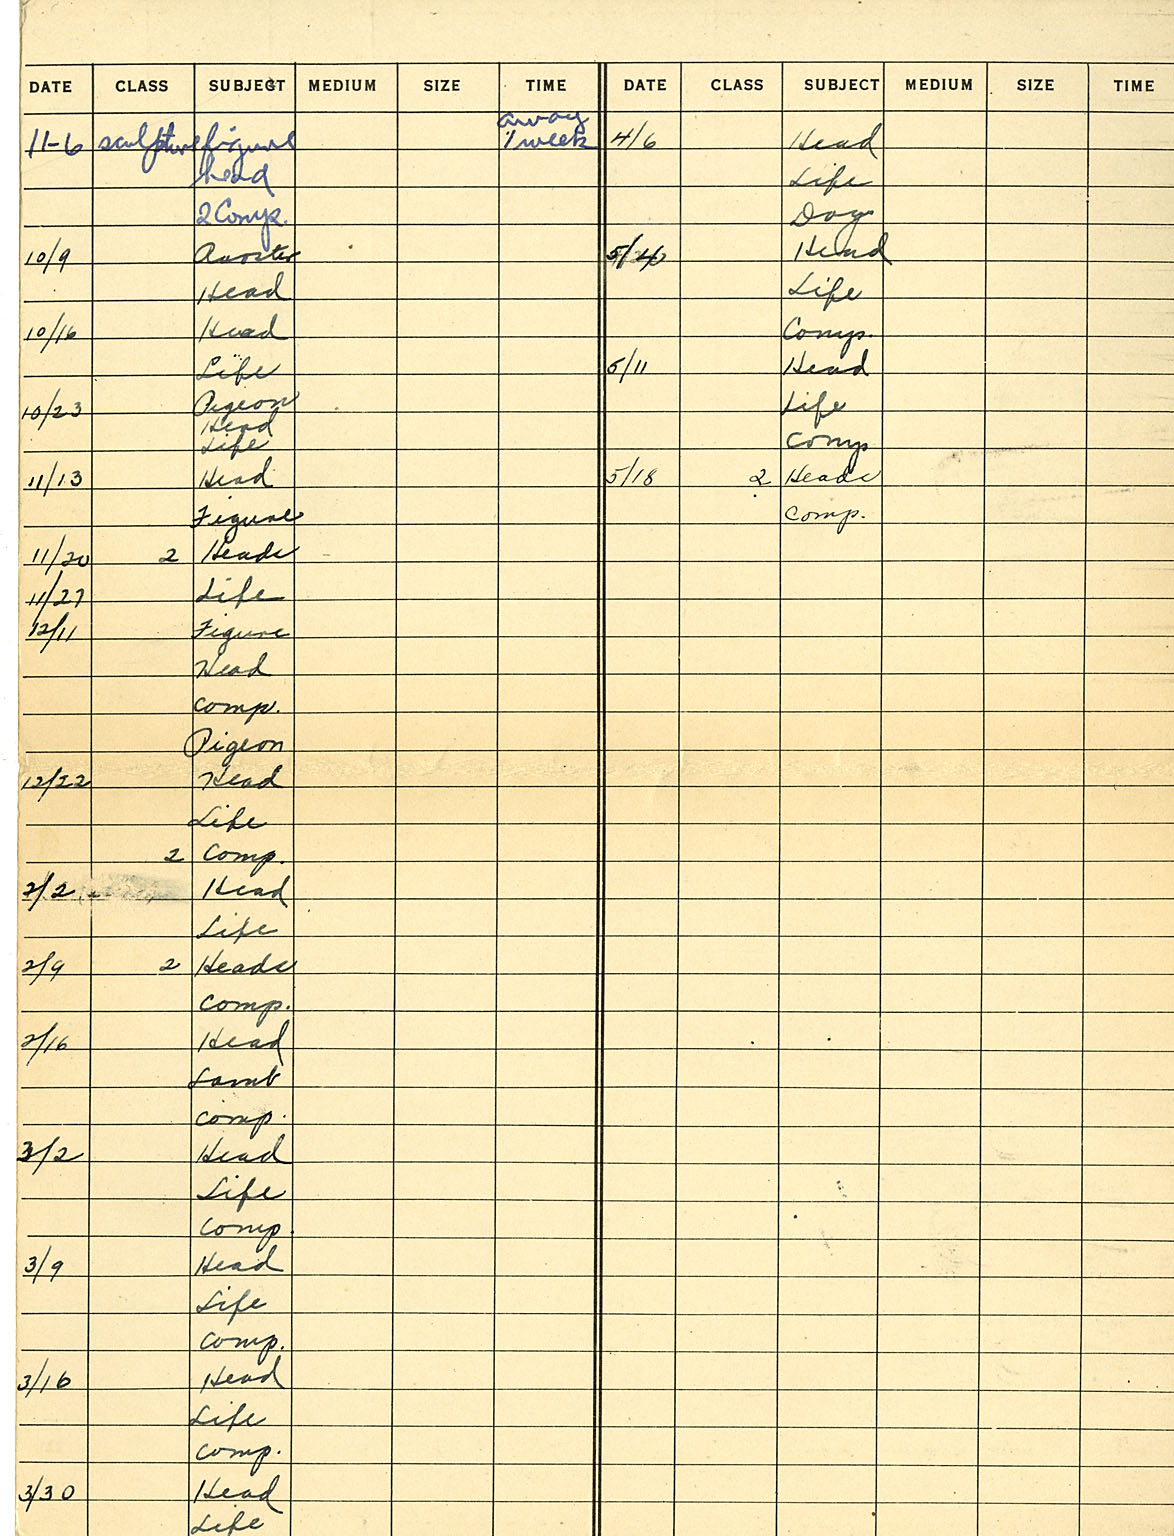 DATE CLASS SUBJECT MEDIUM SIZE TIME
away
11-6 sculpture figure 1 week
head
2 Comps.
10/9 Rooster
Head
10/16 Head
Life
10/23 Pigeon
Head
Life
11/13 Head
Figure
11/20 2 Heads
11/27 Life
12/11 Figure
Head
Comp.
Pigeon
12/22 Head
Life
2 Comp.
2/2 Head
Life
2/9 2 Heads
Comp.
2/16 Head
Lamb
Comp.
3/2 Head
Life
Comp.
3/9 Head
Life
Comp.
3/16 Head
Life
Comp.
3/30 Head
Life
DATE CLASS SUBJECT MEDIUM SIZE TIME
4/6 Head
Life
Dog
Head
Life
Comp.
5/11 Head
Life
Comp
5/18 2 Heads
Comp.